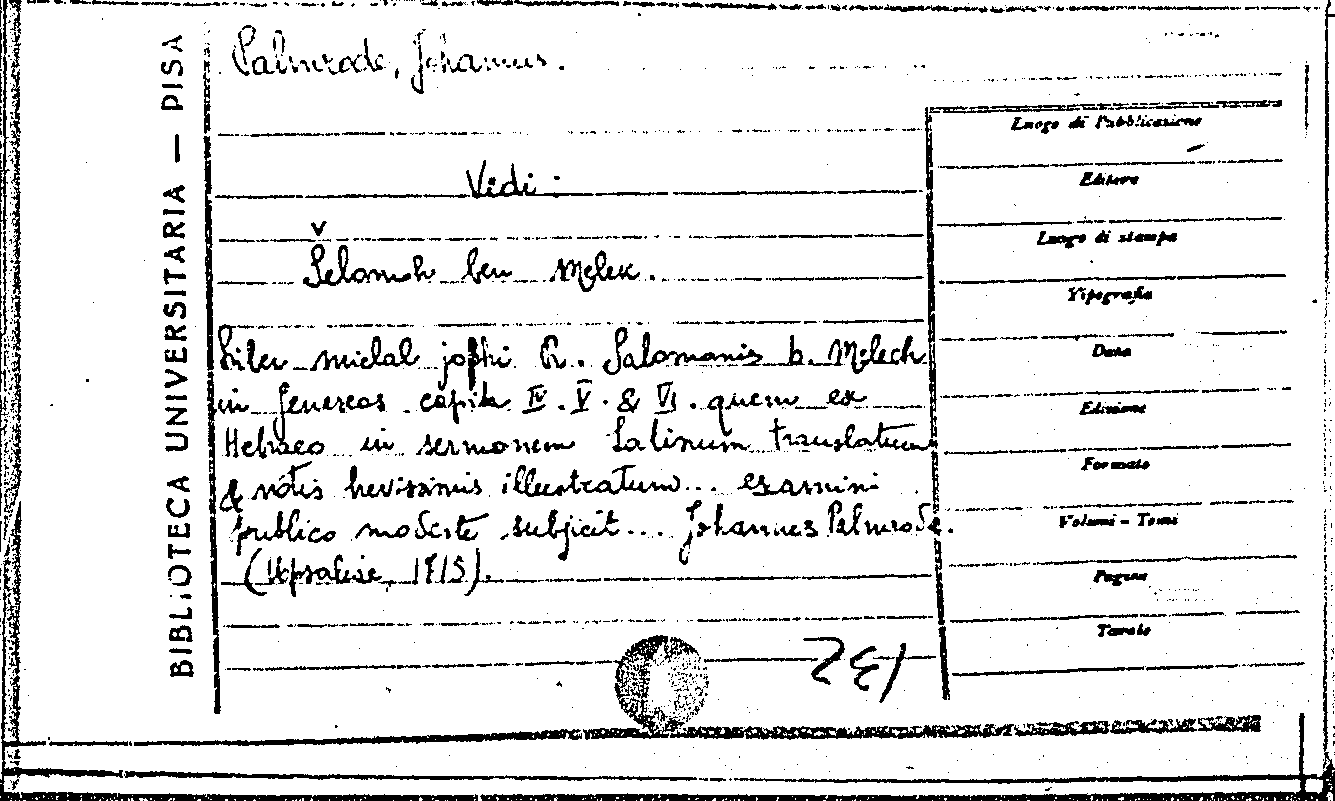 BIBLIOTECA UNIVERSITARIA — PISA
Palmrode, Johannes.
Vidi:
Šelomoh ben Melek.
Liber miclal jophi R. Salomonis b. Melech
in Geneseos capita IV. V. & VI. quem ex
Hebraeo in sermonem Latinum translatum
& notis brevissimis illustratum... examini
publico modeste subjicit... Johannes Palmrode.
Luogo di Pubblicazione
Editore
Luogo di stampa
Tipografia
Data
Edizione
Formato
Volumi - Tomi
Pagine
Tavole